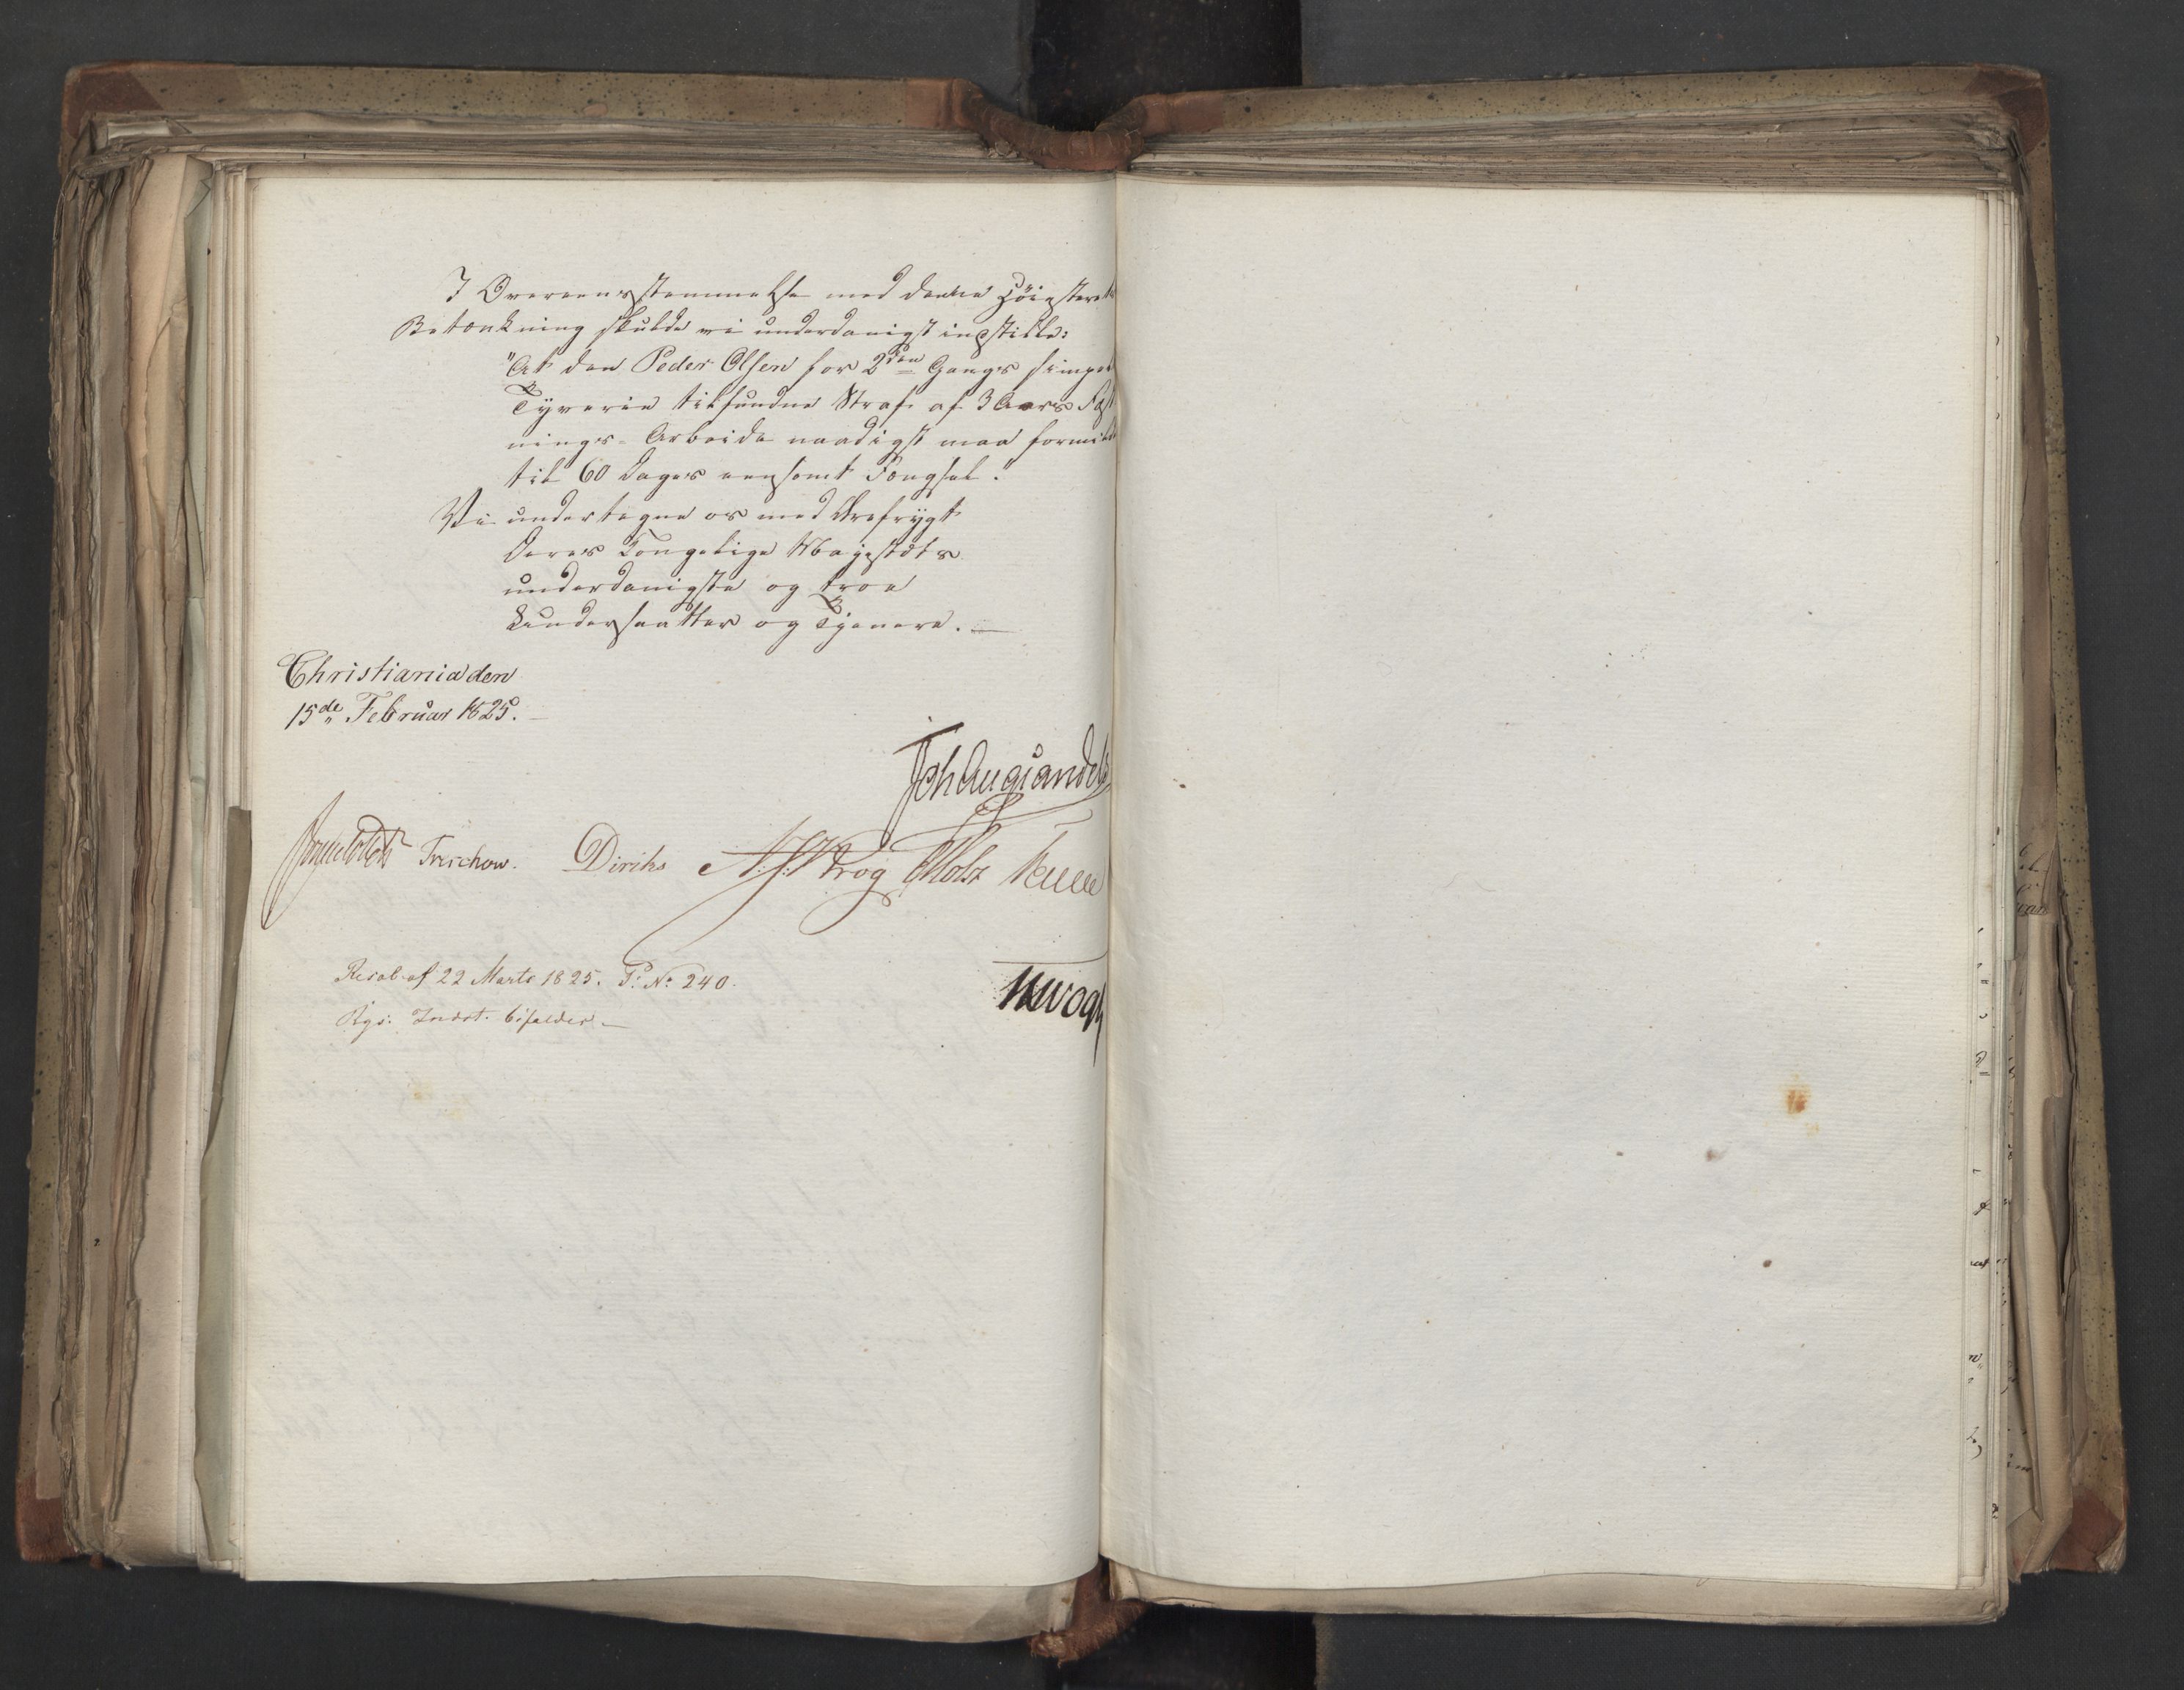 I Overeensstemmelse med denne Høiesterets
Betænkning skulde vi underdanigst indstille:
"At den Peder Olsen for 2den Gangs simpel
Tyverie tilfundne Straf af 3 Aars Fæst
nings-Arbeide naadigst maa formildes
til 60 Dages eensomt Fængsel."
Vi undertegne os med Ærefrygt
Deres Kongelige Majestæts
underdanigste og troe
Undersaatter og Tjenere.
Christiania den
15de Februar 1825.
Joh Aug Sandels
Sommerhielm Treschow. Diriks A:S:W Krog J Holst
Resol. af 22 Marts 1825. P: No: 240.
Rgs: Indst. bifaldes.